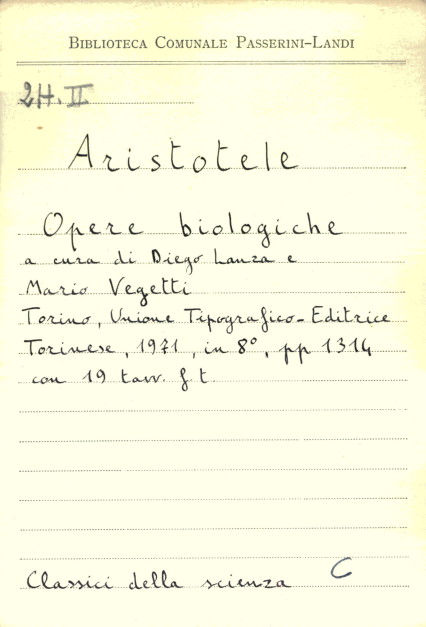 BIBLIOTECA COMUNALE PASSERINI–LANDI
2H.II
Aristotele
Opere biologiche
a cura di Diego Lanza e
Mario Vegetti
Torino, Unione Tipografico-Editrice
Torinese, 1971, in 8°, pp 1314
con 19 tavv. f. t.
Classici della scienza C